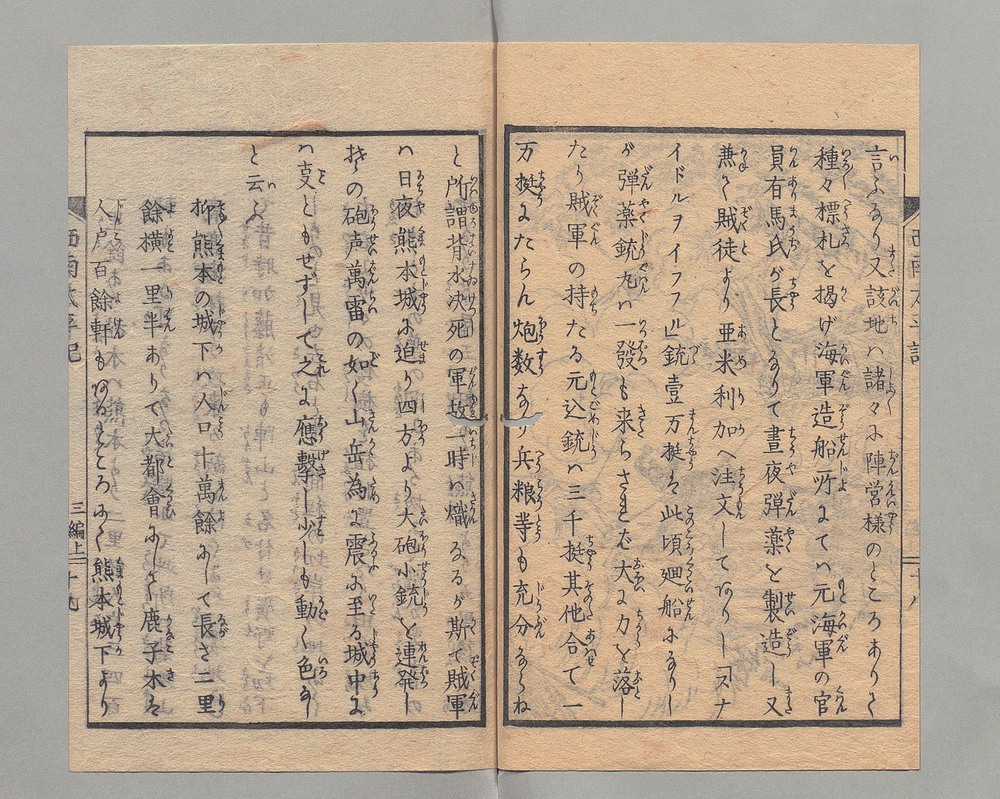 言ふなり又該地ハ諸々に陣営様のところありて
種々標札を揚げ海軍造船所にてハ元海軍の官
員有馬氏が長となりて昼夜弾薬を製造し又
兼て賊徒より亜米利加へ注文してありしヱヌナ
イドルヲイフフ並銃壹万挺は此頃廻船になりし
が弾薬銃丸ハ一發も来らざれば大に力を落し
たり賊軍の持たる元込銃ハ三千挺其他合て一
万挺にたらん炮数なり兵粮等も充分ならね
と所謂背水决死の軍故一時ハ熾なるが斯て賊軍
ハ日夜熊本城に迫り四方より大砲小銃を連発し
其の砲声萬雷の如く山岳為に震ふに至る城中に
ハ支ともせずして之に應撃し少しも動く色なし
と云ふ
抑熊本の城下ハ人口十萬餘にして長さ二里
餘横一里半ありて大都會にして鹿子木は
人戸百餘軒もあるところにて熊本城下より
西南太平記
三編上
十九
西南太平記
十八